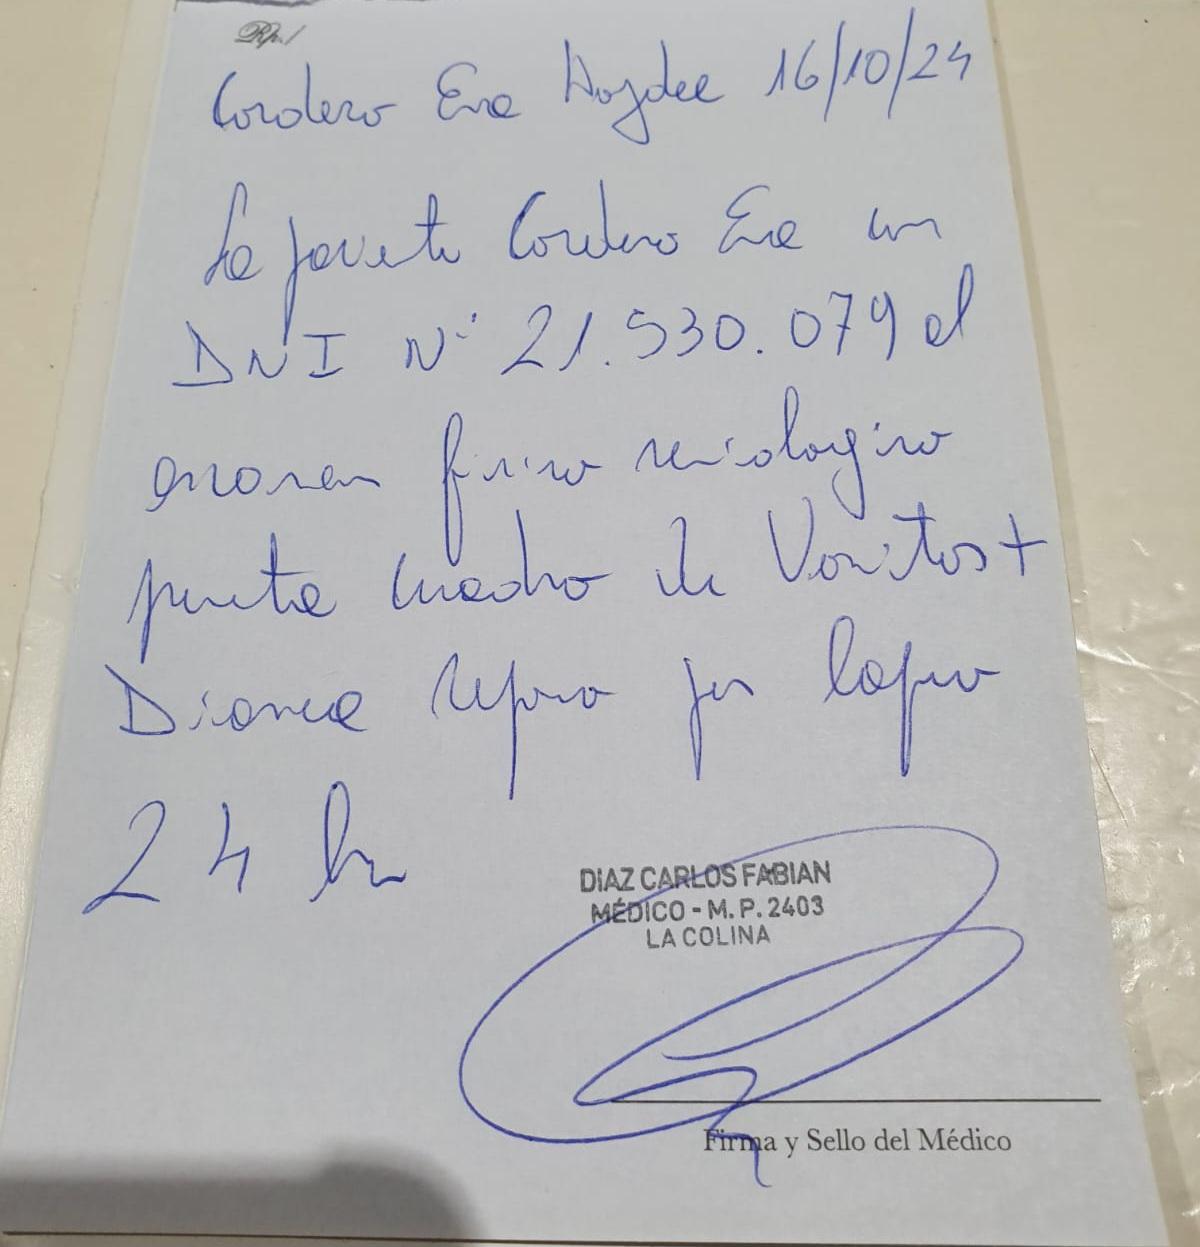 Rp./
Cordero Eva Haydee 16/10/24
La paciente Cordero Eva con
DNI N° 21.530.079 al
examen físico semiologico
presenta cuadro de Vomitos +
Diarrea reposo por lapso
24 hs
DIAZ CARLOS FABIAN
MÉDICO - M. P. 2403
LA COLINA
Firma y Sello del Médico